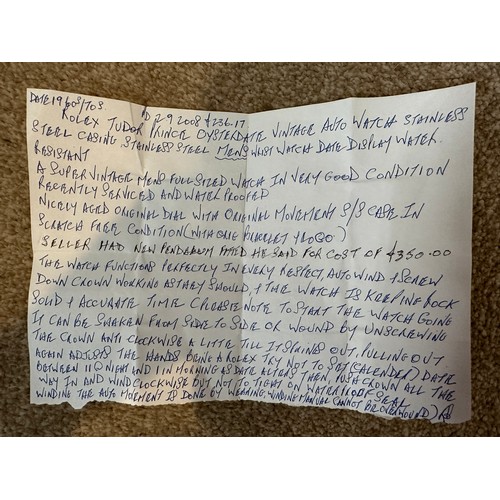 DATE 1960S/70S PD 2 9 2008 £236.17
ROLEX TUDOR PRINCE OYSTERDATE VINTAGE AUTO WATCH STAINLESS
STEEL CASING STAINLESS STEEL MENS WRIST WATCH DATE DISPLAY WATER
RESISTANT
A SUPER VINTAGE MENS FULL SIZED WATCH IN VERY GOOD CONDITION
RECENTLY SERVICED AND WATER PROOFED
NICELY AGED ORIGINAL DIAL WITH ORIGINAL MOVEMENT S/S CASE IN
SCRATCH FREE CONDITION (WITH ORIG BRACELET & LOGO)
SELLER HAD NEW PENDEULUM FITTED HE SAID FOR COST OF £350.00
THE WATCH FUNCTIONS PERFECTLY IN EVERY RESPECT, AUTO WIND & SCREW
DOWN CROWN WORKING AS THEY SHOULD, & THE WATCH IS KEEPING ROCK
SOLID & ACCURATE TIME (PLEASE NOTE TO START THE WATCH GOING
IT CAN BE SHAKEN FROM SIDE TO SIDE OR WOUND BY UNSCREWING
THE CROWN ANTI CLOCKWISE A LITTLE TILL IT SPRINGS OUT, PULLING OUT
AGAIN ADJSTS THE HANDS BEING A ROLEX TRY NOT TO SET (CALENDER) DATE
BETWEEN 11@ NIGHT AND 1 IN MORNING AS DATE ALTERS THEN, PUSH CROWN ALL THE
WAY IN AND WIND CLOCKWISE BUT NOT TO TIGHT ON WATERPROOF SEAL
WINDING THE AUTO MOVEMENT IS DONE BY WEARING, WINDING MANUAL CANNOT BE OVERWOUND)